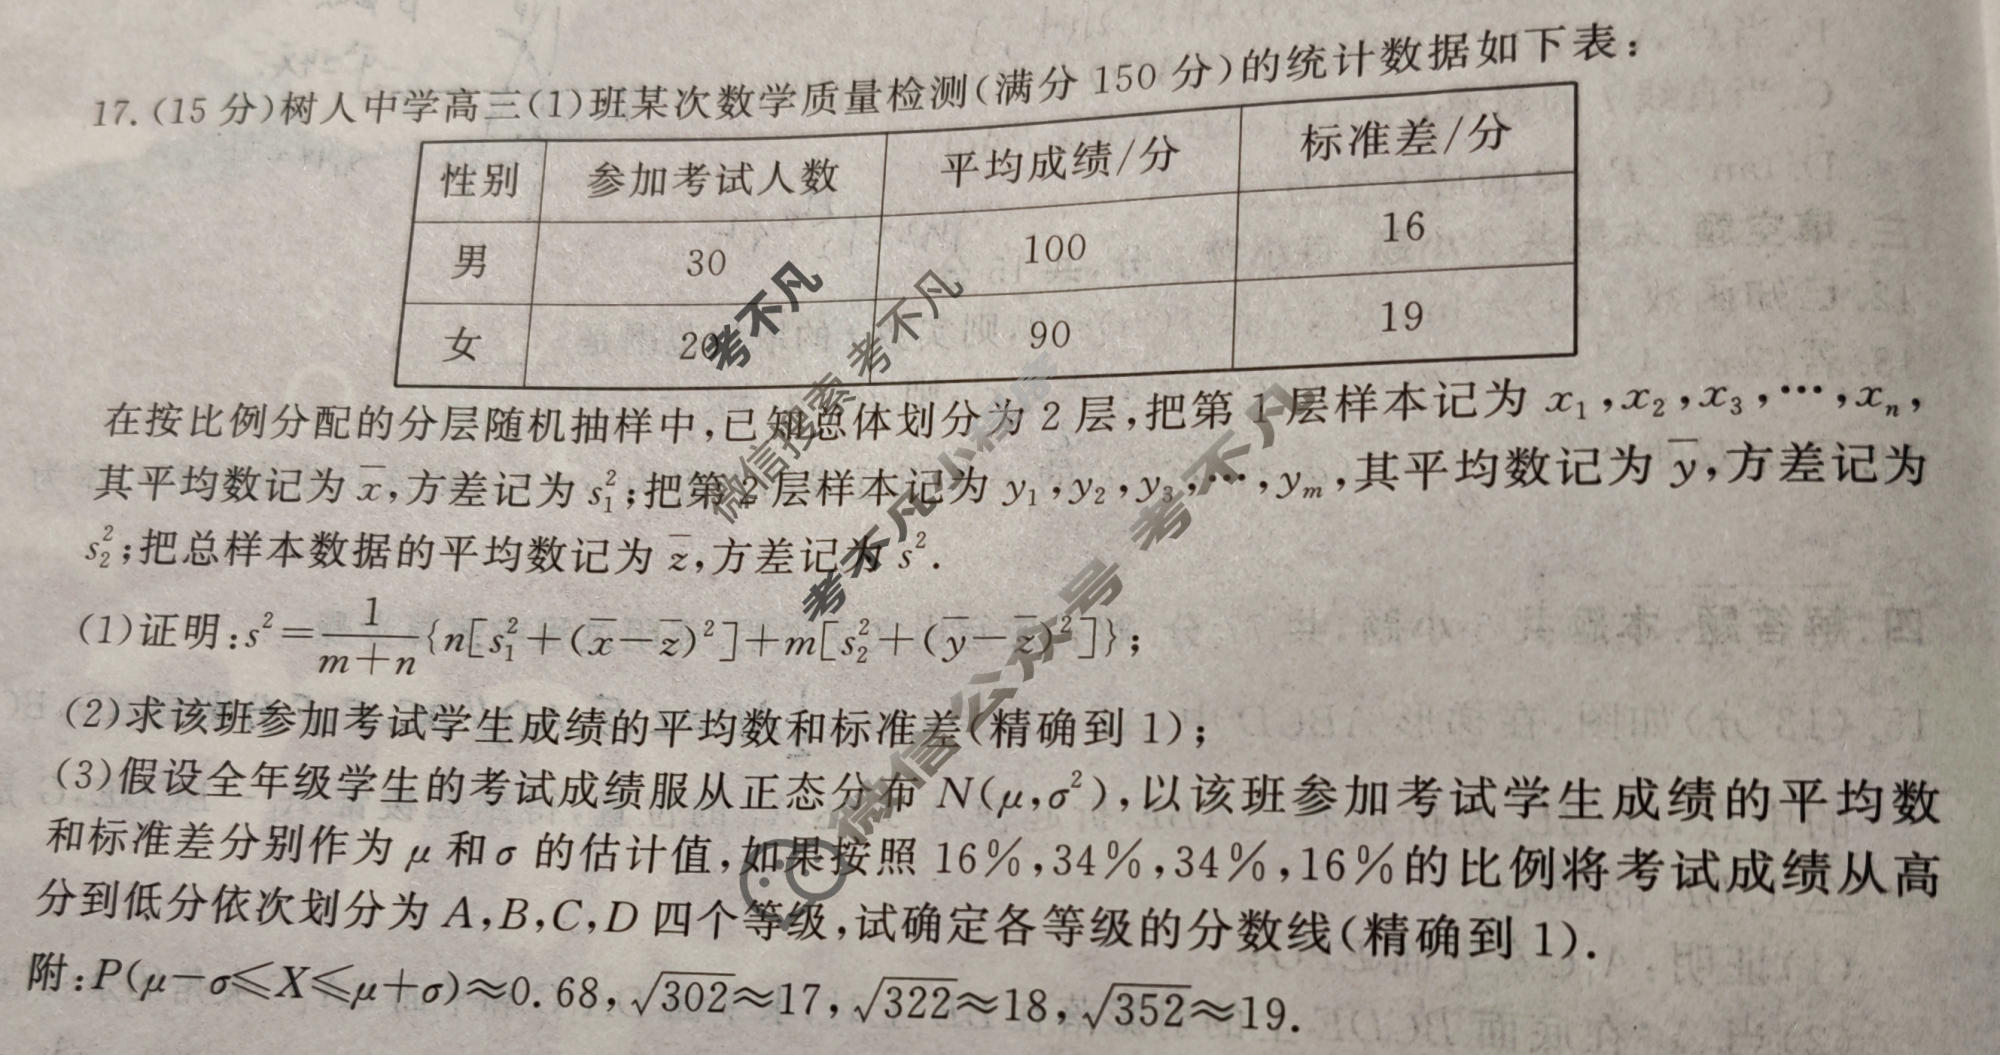 17.(15分)树人中学高三(1)班某次数学质量检测(满分150分)的统计数据如下表:
性别 参加考试人数 平均成绩/分 标准差/分
男 30 100 16
女 20 90 19
在按比例分配的分层随机抽样中,已知总体划分为2层,把第1层样本记为 x₁,x₂,x₃,…,xₙ,
其平均数记为 x̄,方差记为 s₁²;把第2层样本记为 y₁,y₂,y₃,…,yₘ,其平均数记为 ȳ,方差记为
s₂²;把总样本数据的平均数记为 z̄,方差记为 s².
(1)证明:s²=1/(m+n){n[s₁²+(x̄-z̄)²]+m[s₂²+(ȳ-z̄)²]};
(2)求该班参加考试学生成绩的平均数和标准差(精确到1);
(3)假设全年级学生的考试成绩服从正态分布 N(μ,σ²),以该班参加考试学生成绩的平均数
和标准差分别作为 μ 和 σ 的估计值,如果按照16%,34%,34%,16%的比例将考试成绩从高
分到低分依次划分为 A,B,C,D 四个等级,试确定各等级的分数线(精确到1).
附:P(μ-σ≤X≤μ+σ)≈0.68,√302≈17,√322≈18,√352≈19.
考不凡
微信搜索 考不凡
考不凡小程序
微信公众号 考不凡